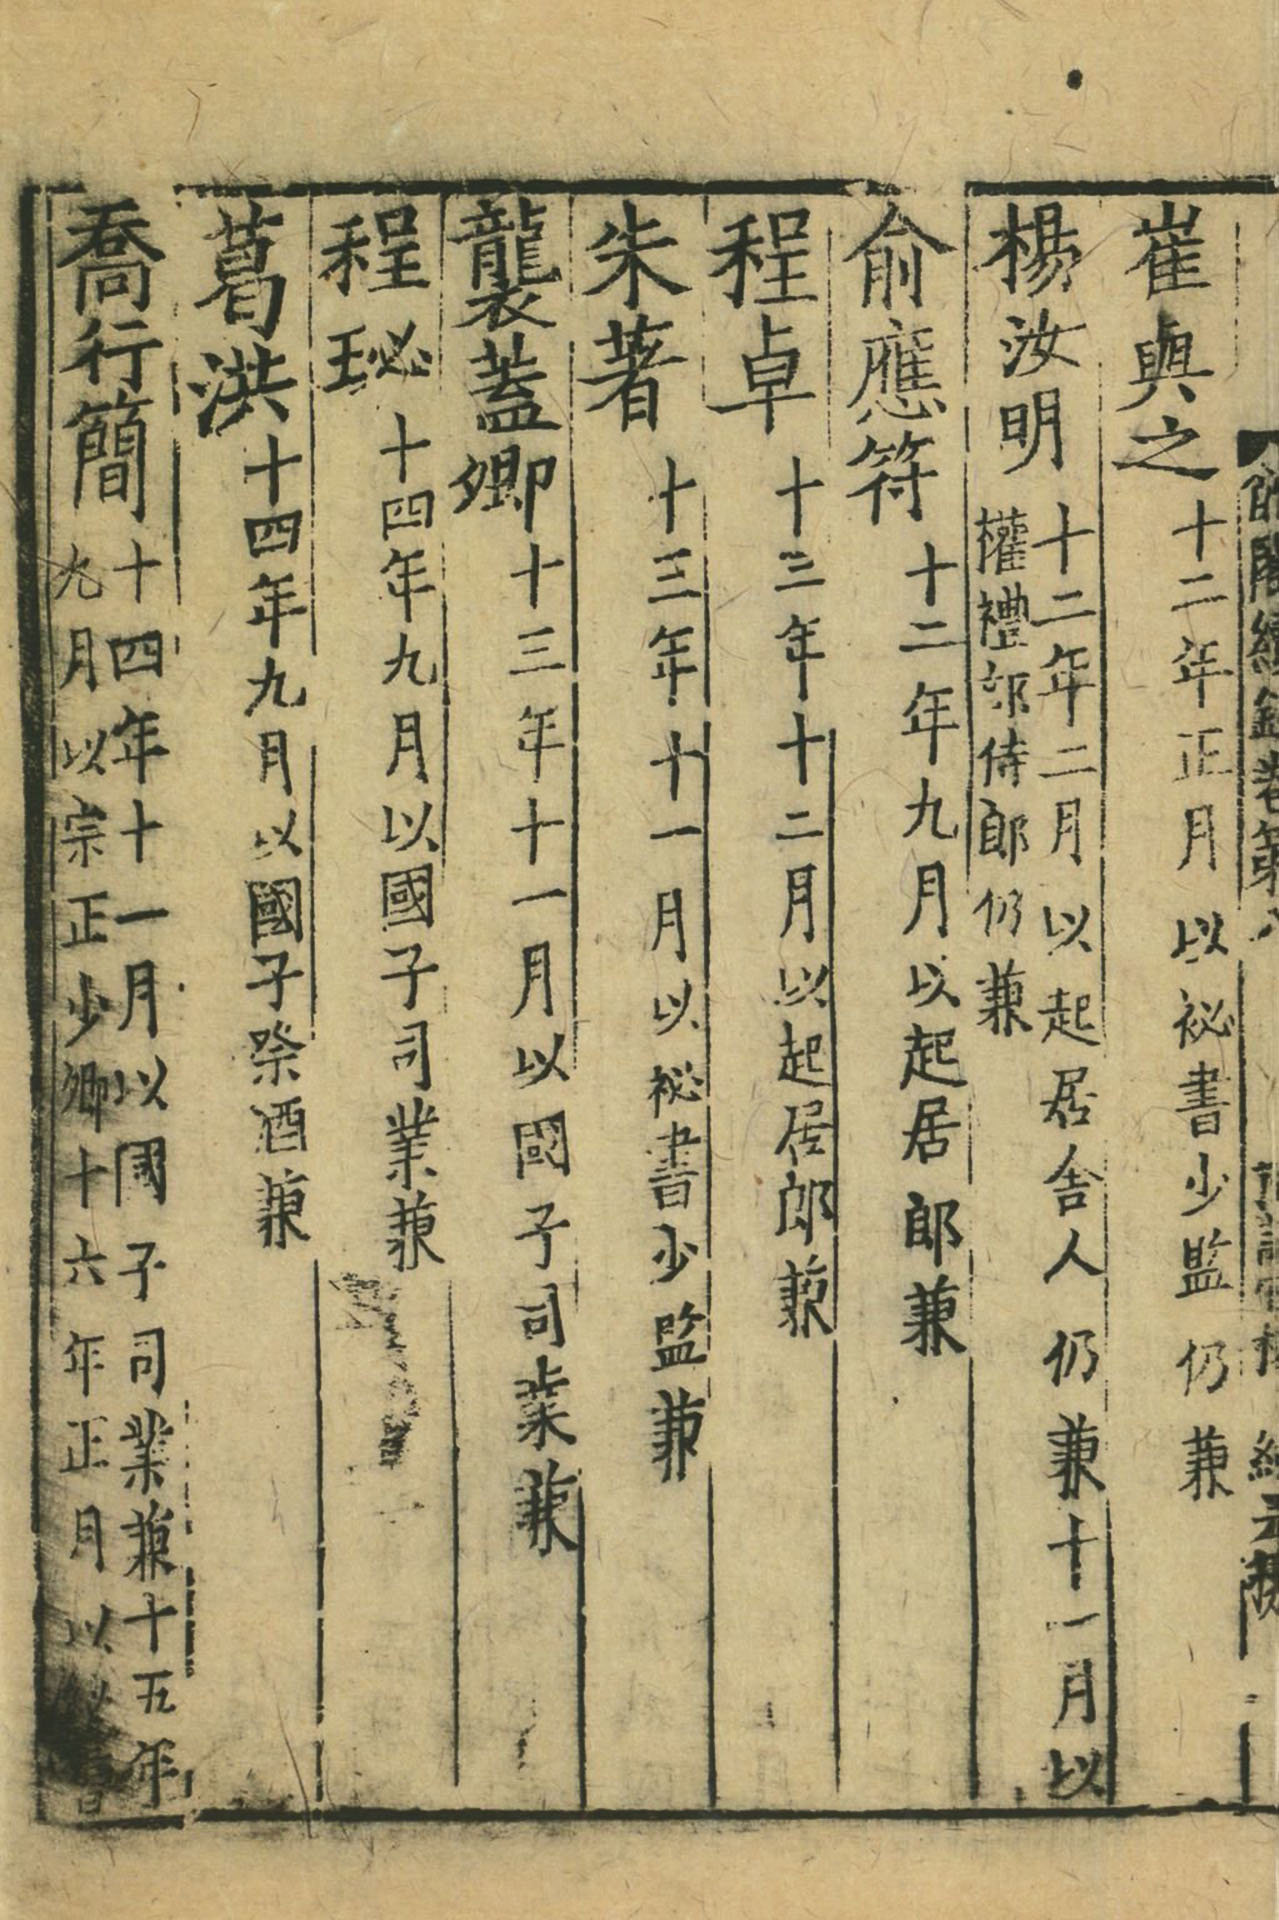 崔與之十二年正月以祕書少監仍兼
楊汝明十二年二月以起居舍人仍兼十一月以
權禮部侍郎仍兼
俞應符十二年九月以起居郎兼
程卓十三年十二月以起居郎兼
朱著十三年十一月以祕書少監兼
龔蓋卿十三年十一月以國子司業兼
程珌十四年九月以國子司業兼
葛洪十四年九月以國子祭酒兼
喬行簡十四年十一月以國子司業兼十五年
九月以宗正少卿十六年正月以祕書